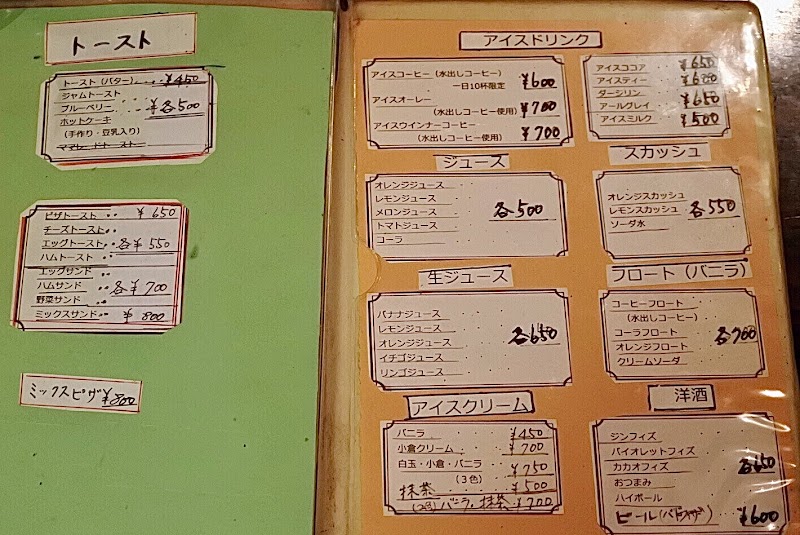 トースト
トースト(バター) ¥450
ジャムトースト
ブルーベリー ¥各500
ホットケーキ
(手作り・豆乳入り)
ママレードトースト
ピザトースト ¥650
チーズトースト
エッグトースト 各¥550
ハムトースト
エッグサンド
ハムサンド 各¥700
野菜サンド
ミックスサンド ¥800
ミックスピザ¥800
アイスドリンク
アイスコーヒー(水出しコーヒー) ¥600
一日10杯限定
アイスオーレー ¥700
(水出しコーヒー使用)
アイスウインナーコーヒー ¥700
(水出しコーヒー使用)
アイスココア ¥650
アイスティー ¥600
ダージリン
アールグレイ ¥650
アイスミルク ¥500
ジュース
オレンジジュース
レモンジュース
メロンジュース 各500
トマトジュース
コーラ
スカッシュ
オレンジスカッシュ
レモンスカッシュ 各550
ソーダ水
生ジュース
バナナジュース
レモンジュース
オレンジジュース 各650
イチゴジュース
リンゴジュース
フロート(バニラ)
コーヒーフロート
(水出しコーヒー)
コーラフロート 各700
オレンジフロート
クリームソーダ
アイスクリーム
バニラ ¥450
小倉クリーム ¥700
白玉・小倉・バニラ ¥750
(3色)
抹茶 ¥500
(2色)バニラ、抹茶 ¥700
洋酒
ジンフィズ
バイオレットフィズ
カカオフィズ 各650
おつまみ
ハイボール
ビール ¥600